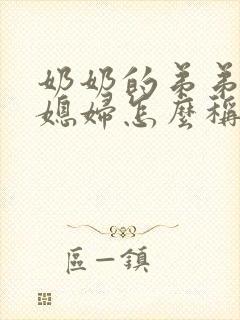 奶奶的弟弟
媳婦怎麼稱
區一鎮